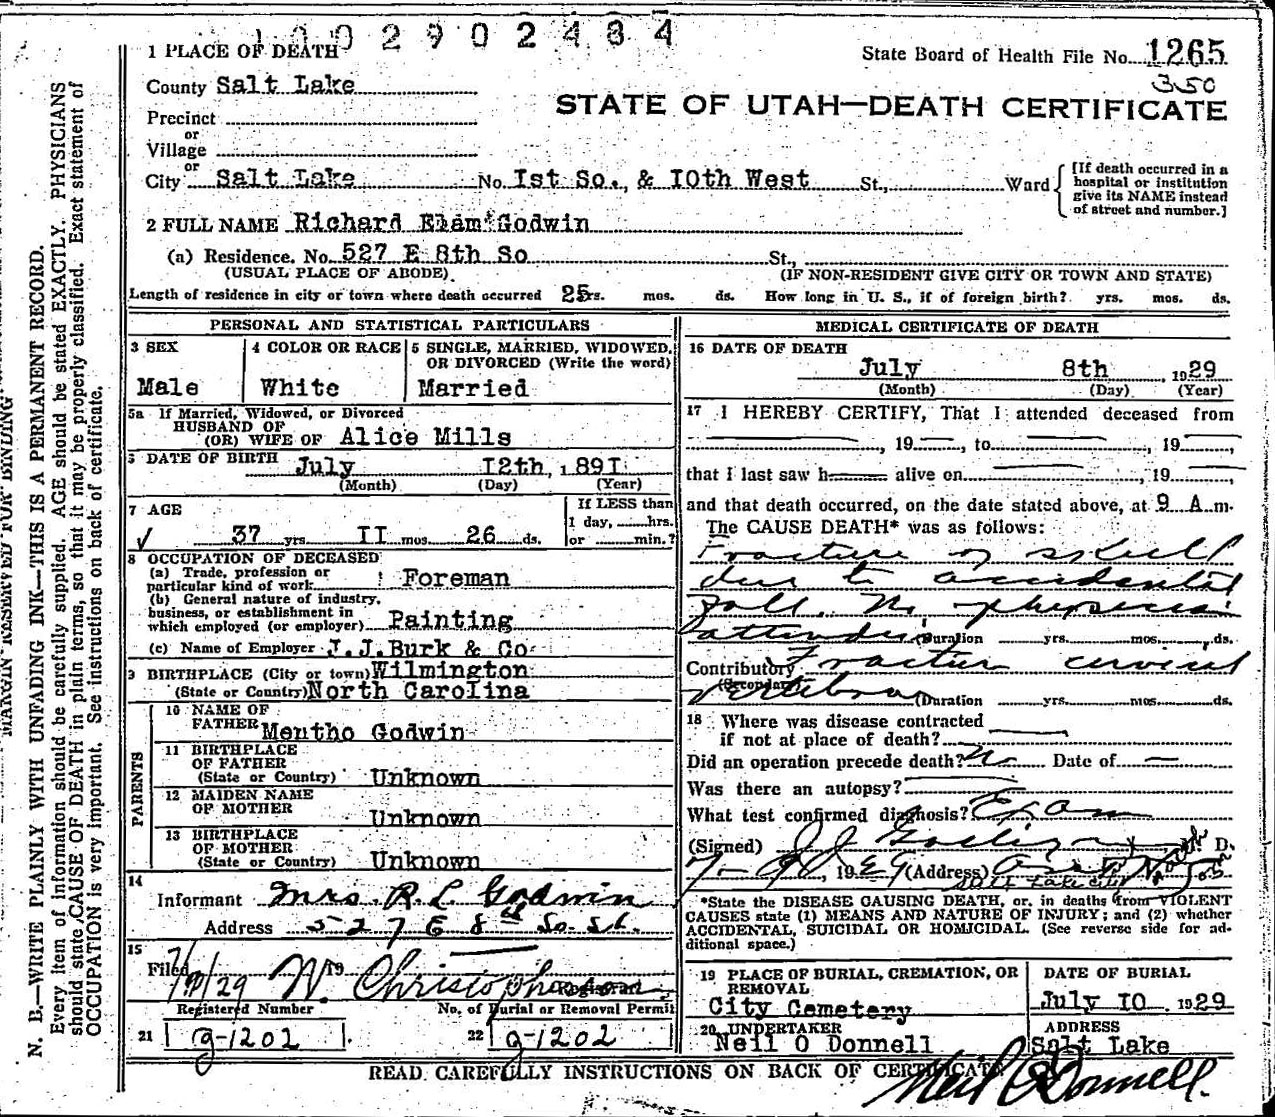 1002902484
1 PLACE OF DEATH
State Board of Health File No. 1265
350
County Salt Lake
STATE OF UTAH—DEATH CERTIFICATE
Precinct
or
Village
or
City Salt Lake No. 1st So., & 10th West St., Ward
[If death occurred in a
hospital or institution
give its NAME instead
of street and number.]
2 FULL NAME Richard Elam Godwin
(a) Residence. No. 527 E 8th So St.,
(USUAL PLACE OF ABODE) (IF NON-RESIDENT GIVE CITY OR TOWN AND STATE)
Length of residence in city or town where death occurred 25 yrs. mos. ds. How long in U. S., if of foreign birth? yrs. mos. ds.
PERSONAL AND STATISTICAL PARTICULARS
3 SEX
Male
4 COLOR OR RACE
White
5 SINGLE, MARRIED, WIDOWED,
OR DIVORCED (Write the word)
Married
5a If Married, Widowed, or Divorced
HUSBAND OF
(OR) WIFE OF Alice Mills
DATE OF BIRTH July 12th, 1891
(Month) (Day) (Year)
7 AGE
37 yrs. 11 mos. 26 ds.
If LESS than
1 day, hrs.
or min.?
8 OCCUPATION OF DECEASED
(a) Trade, profession or
particular kind of work Foreman
(b) General nature of industry,
business, or establishment in
which employed (or employer) Painting
(c) Name of Employer J.J.Burk & Co
9 BIRTHPLACE (City or town) Wilmington
(State or Country) North Carolina
PARENTS
10 NAME OF
FATHER Mentho Godwin
11 BIRTHPLACE
OF FATHER
(State or Country) Unknown
12 MAIDEN NAME
OF MOTHER
Unknown
13 BIRTHPLACE
OF MOTHER
(State or Country) Unknown
14
Informant Mrs. R. L. Godwin
Address 527 E 8th So. St.
15
Filed 19 W. Christopherson
Registrar
Registered Number No. of Burial or Removal Permit
21 g-1202 22 g-1202
MEDICAL CERTIFICATE OF DEATH
16 DATE OF DEATH
July 8th 1929
(Month) (Day) (Year)
17 I HEREBY CERTIFY, That I attended deceased from
, 19 , to , 19
that I last saw h alive on , 19
and that death occurred, on the date stated above, at 9 A.m.
The CAUSE DEATH* was as follows:
Fracture of skull
due to accidental
fall. No physician
attended (Duration yrs. mos. ds.
Contributory Fracture cervical
(Secondary)
vertebra (Duration yrs. mos. ds.
18 Where was disease contracted
if not at place of death?
Did an operation precede death? No Date of —
Was there an autopsy?
What test confirmed diagnosis? Exam
(Signed) M. D.
, 19 (Address)
Salt Lake City
*State the DISEASE CAUSING DEATH, or, in deaths from VIOLENT
CAUSES state (1) MEANS AND NATURE OF INJURY; and (2) whether
ACCIDENTAL, SUICIDAL OR HOMICIDAL. (See reverse side for ad-
ditional space.)
19 PLACE OF BURIAL, CREMATION, OR
REMOVAL
City Cemetery
DATE OF BURIAL
July 10 1929
20 UNDERTAKER
Neil O Donnell
ADDRESS
Salt Lake
READ CAREFULLY INSTRUCTIONS ON BACK OF CERTIFICATE
Neil O'Donnell.
MARGIN RESERVED FOR BINDING
N. B.—WRITE PLAINLY WITH UNFADING INK—THIS IS A PERMANENT RECORD.
Every item of information should be carefully supplied. AGE should be stated EXACTLY. PHYSICIANS
should state CAUSE OF DEATH in plain terms, so that it may be properly classified. Exact statement of
OCCUPATION is very important. See instructions on back of certificate.